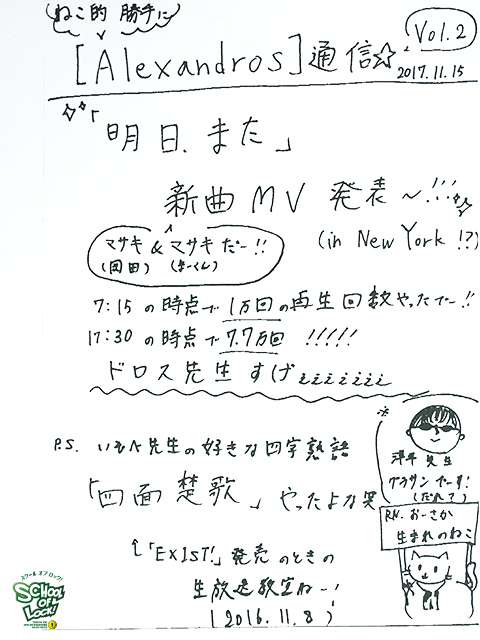 ねこ的 勝手に
[Alexandros]通信☆
Vol.2
2017.11.15
「明日、また」
新曲 MV 発表〜!!!
(in New York !?)
マサキ & マサキ だー!!
(岡田) (まーくん)
7:15 の時点で 1万回の再生回数やったでー!!
17:30 の時点で 7.7万回 !!!!!
ドロス先生 すげぇぇぇぇぇぇぇ
P.S. いもハ先生の好きな四字熟語
「四面楚歌」やったよな笑
↑「EXIST!」発売のときの
生放送教室ねー!
(2016.11.8)
*
洋平 先生
グラサンでーす!
(だれ?)
RN. おーさか
生まれのねこ
スクール オブ ロック!
SCHOOL OF LOCK!